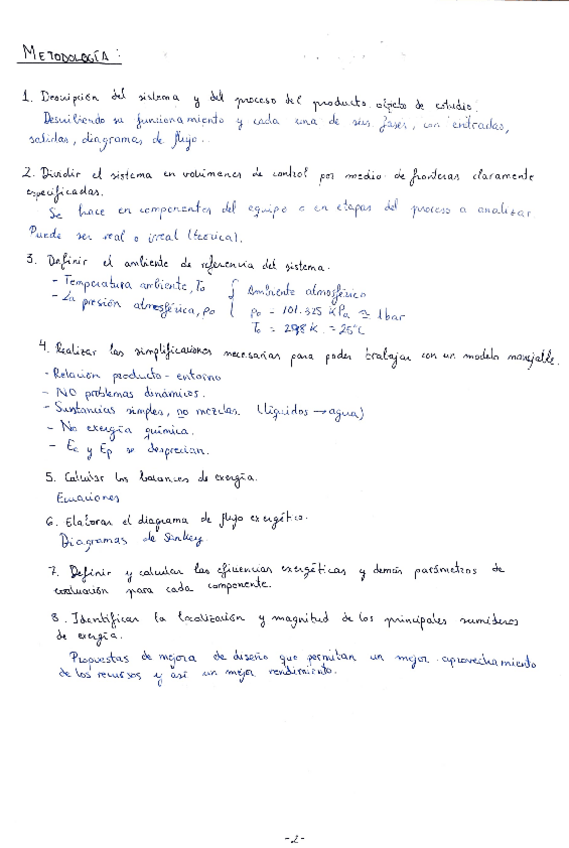 METODOLOGÍA:
1. Descripción del sistema y del proceso del producto objeto de estudio.
Describiendo su funcionamiento y cada una de sus fases, con entradas,
salidas, diagramas de flujo...
2. Dividir el sistema en volúmenes de control por medio de fronteras claramente
especificadas.
Se hace en componentes del equipo o en etapas del proceso a analizar
Puede ser real o irreal (teórica).
3. Definir el ambiente de referencia del sistema.
- Temperatura ambiente, T0 { Ambiente atmosférico
- La presión atmosférica, p0 p0 = 101.325 kPa ≃ 1bar
T0 = 298 K = 25°C
4. Realizar las simplificaciones necesarias para poder trabajar con un modelo manejable.
- Relación producto-entorno
- NO problemas dinámicos.
- Sustancias simples, no mezclas. (líquidos → agua)
- No exergía química.
- Ec y Ep se desprecian.
5. Calcular los balances de exergía.
Ecuaciones
6. Elaborar el diagrama de flujo exergético.
Diagramas de Sankey
7. Definir y calcular las eficiencias exergéticas y demás parámetros de
evaluación para cada componente.
8. Identificar la localización y magnitud de los principales sumideros
de exergía.
Propuestas de mejora de diseño que permitan un mejor aprovechamiento
de los recursos y así un mejor rendimiento.
-2-